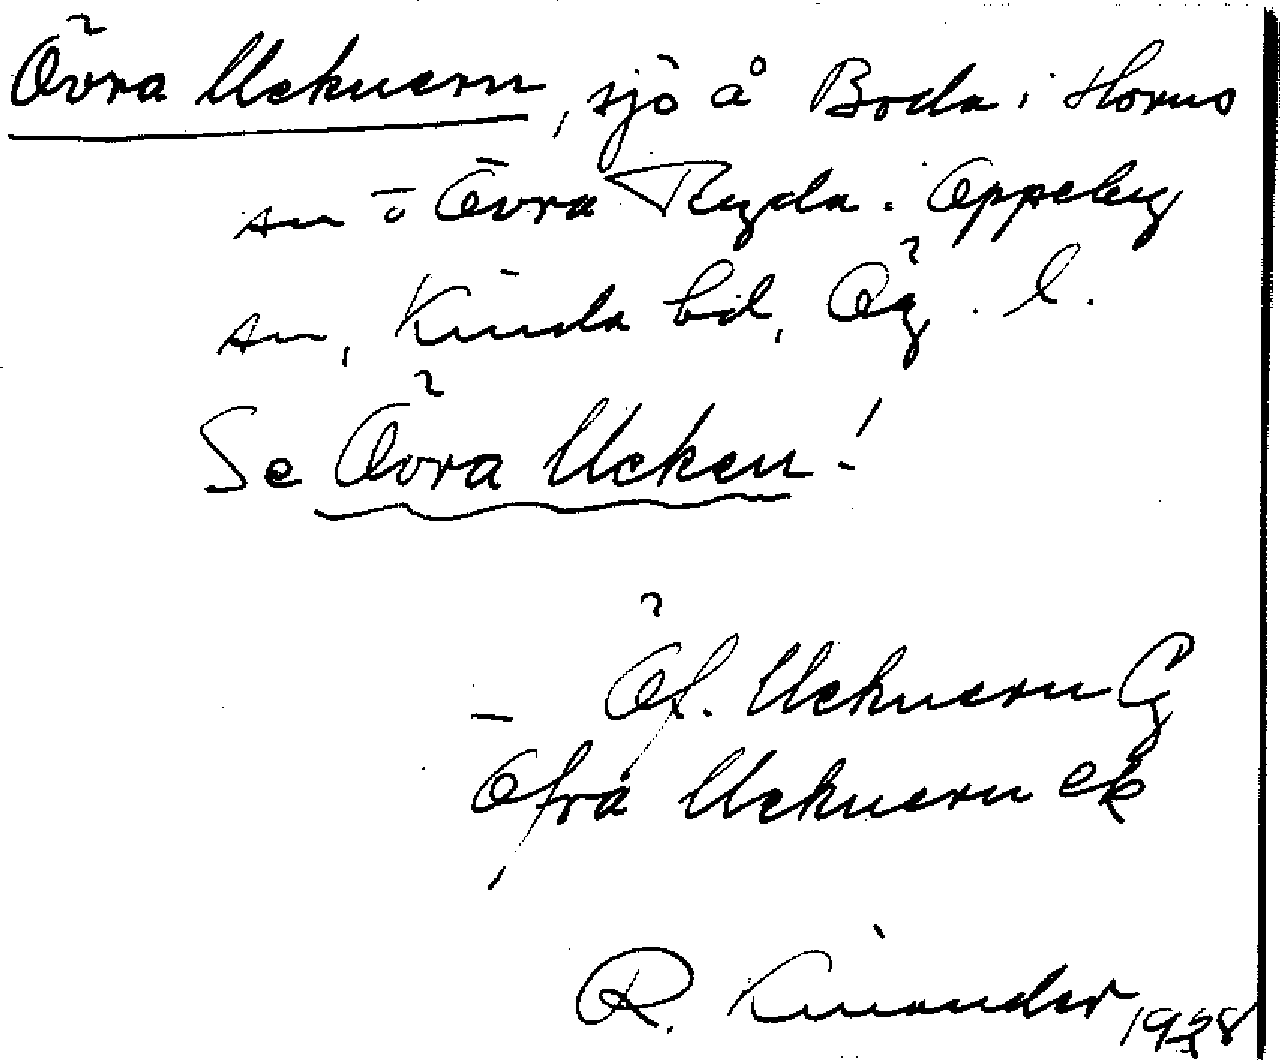 Övra Ucknern, sjö å Boda i Horns
sn o Övra Ryda i Oppeby
sn, Kinda hd, Ög. l.
Se Övra Ucken!
- Öf. Ucknern
Öfra Ucknern ek
R. Kinander